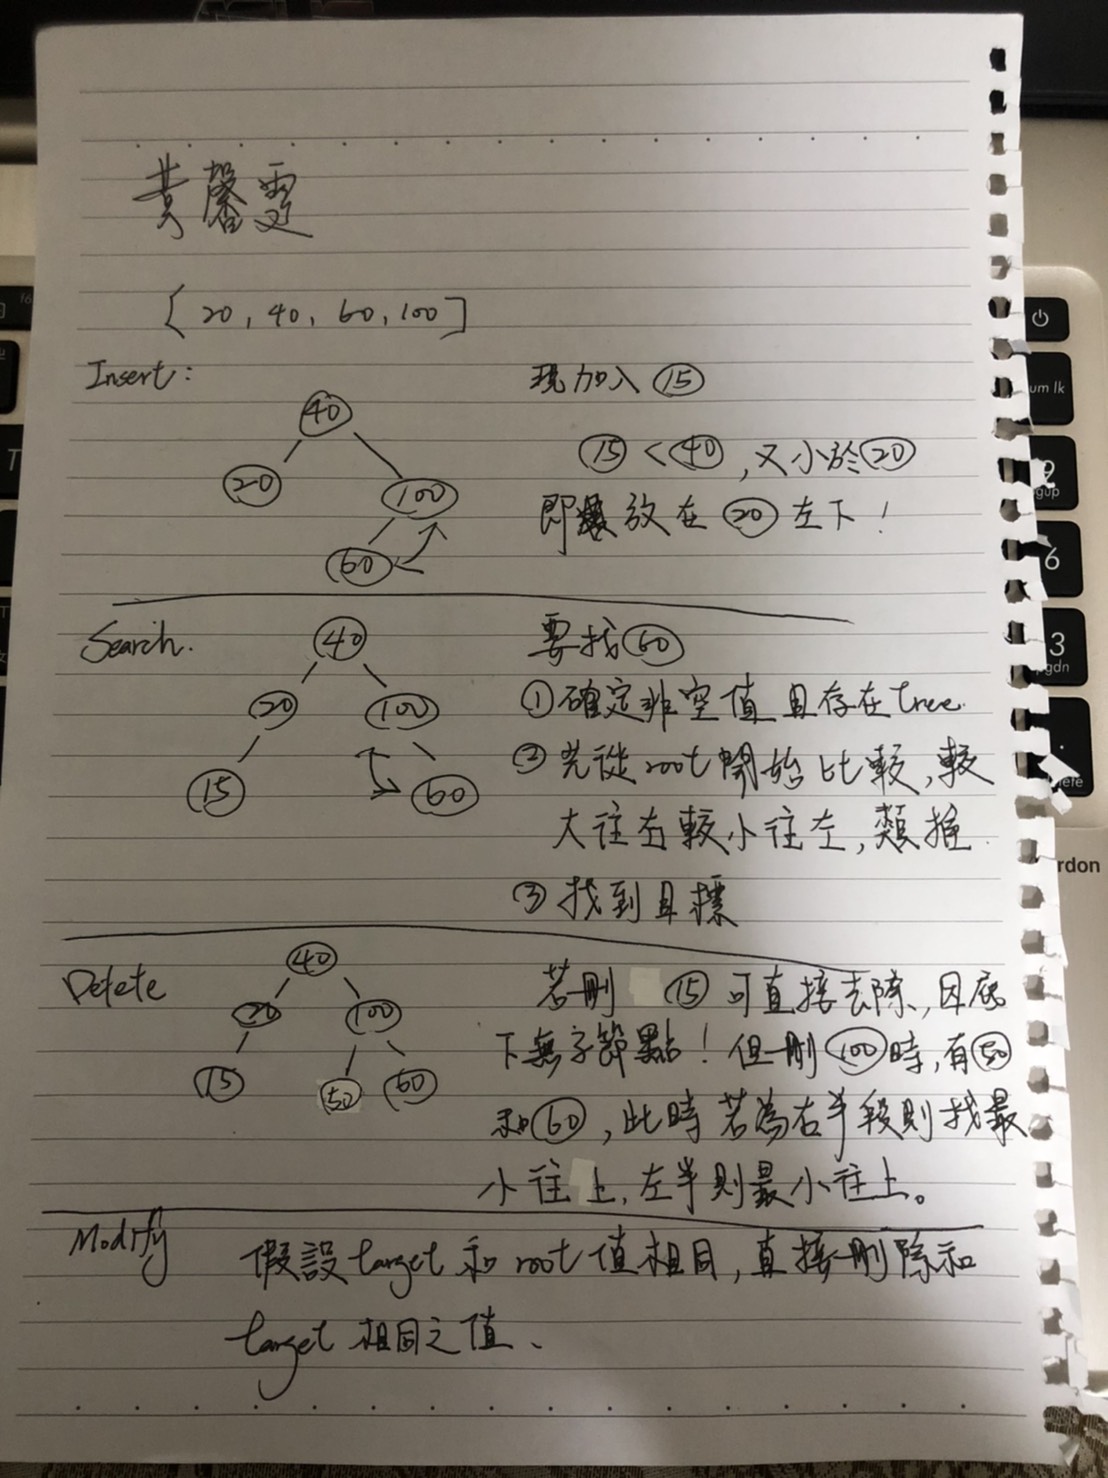 黄馨雯
[20, 40, 60, 100]
Insert:
40
20
100
60
現加入 15
15 < 40, 又小於 20
即 放在 20 左下!
Search.
40
20
100
15
60
要找 60
① 確定非空值且存在tree.
② 先從root開始比較, 較
大往右較小往左, 類推.
③ 找到目標
Delete
40
20
100
15
50
60
若刪 15 可直接去除, 因底
下無子節點! 但刪 100 時, 有 50
和 60, 此時若為右半段則找最
小往上, 左半則最小往上。
Modify
假設target和root值相同, 直接刪除和
target相同之值、
f6
um lk
9
pgup
6
3
pgdn
rdon